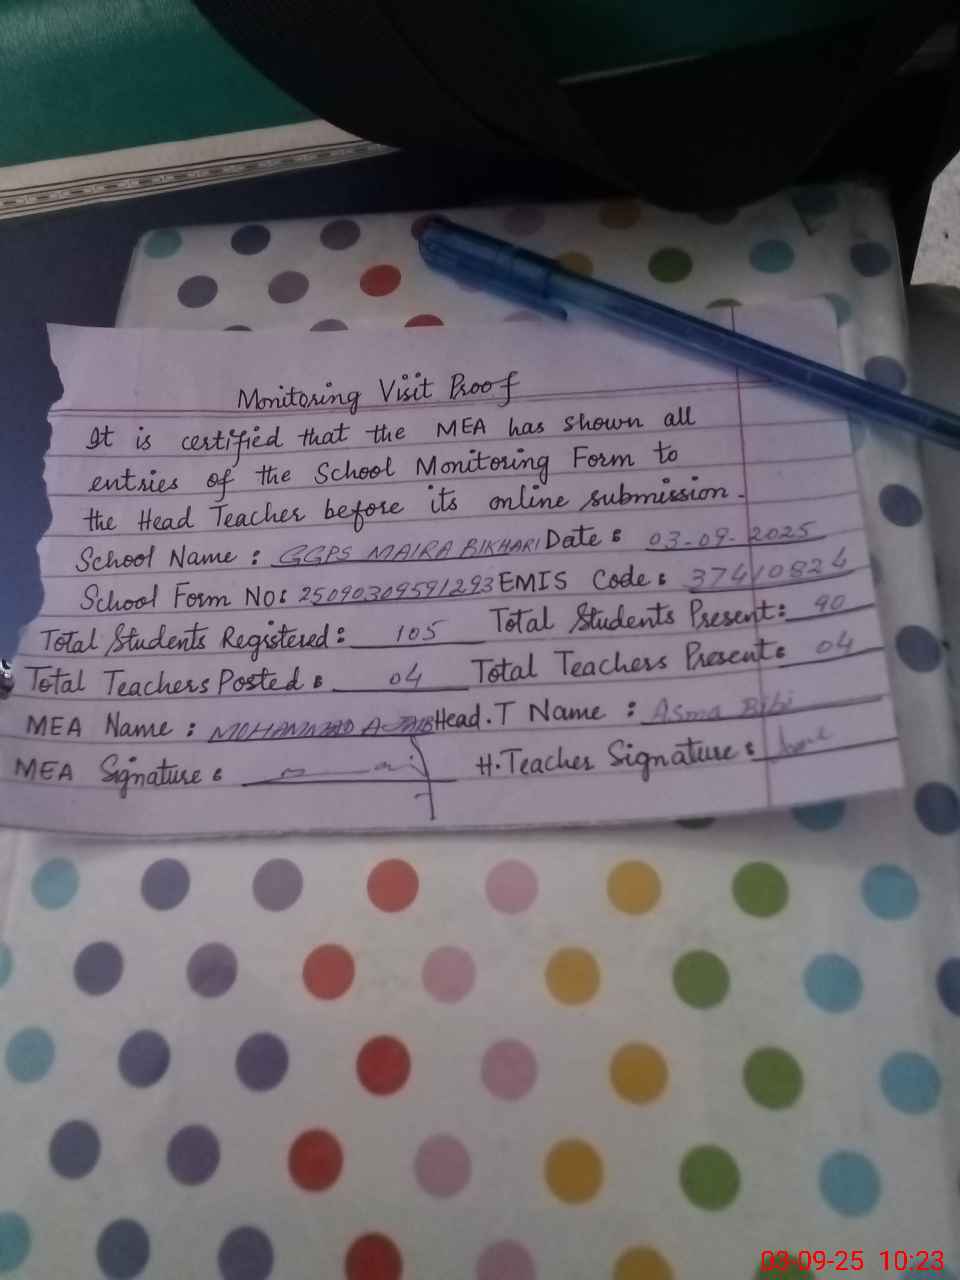 Monitoring Visit Proof
It is certified that the MEA has shown all
entries of the School Monitoring Form to
the Head Teacher before its online submission.
School Name : GGPS MAIRA BIKHARI Date : 03-09-2025
School Form No: 25090309591293 EMIS Code: 37410824
Total Students Registered: 105 Total Students Present: 90
Total Teachers Posted : 04 Total Teachers Present: 04
MEA Name : MOHAMMAD AJAIB Head.T Name : Asma Bibi
MEA Signature : H.Teacher Signature :
03-09-25 10:23